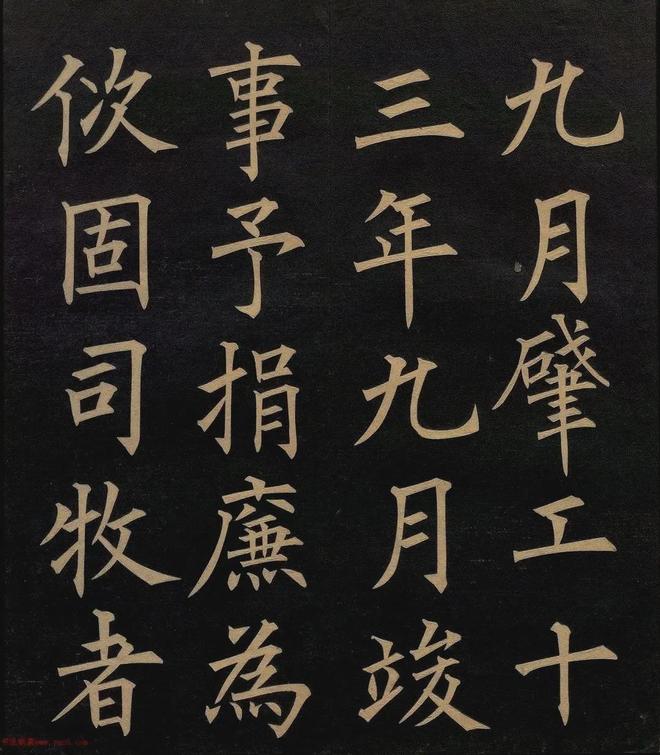 九月肈工十
三年九月竣
事予捐廉為
佽固司牧者